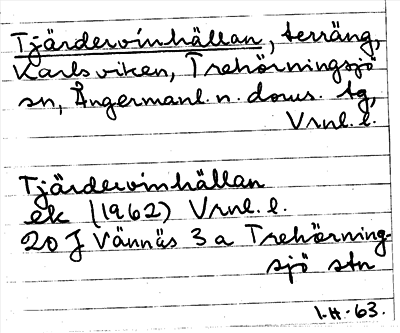 Tjärdervinhällan, terräng,
Karlsviken, Trehörningsjö
sn, Ångermanl. n. doms. tg,
Vrnl. l.
Tjärdervinhällan
ek (1962) Vrnl. l.
20 J Vännäs 3 a Trehörning-
sjö stn
I.H.-63.